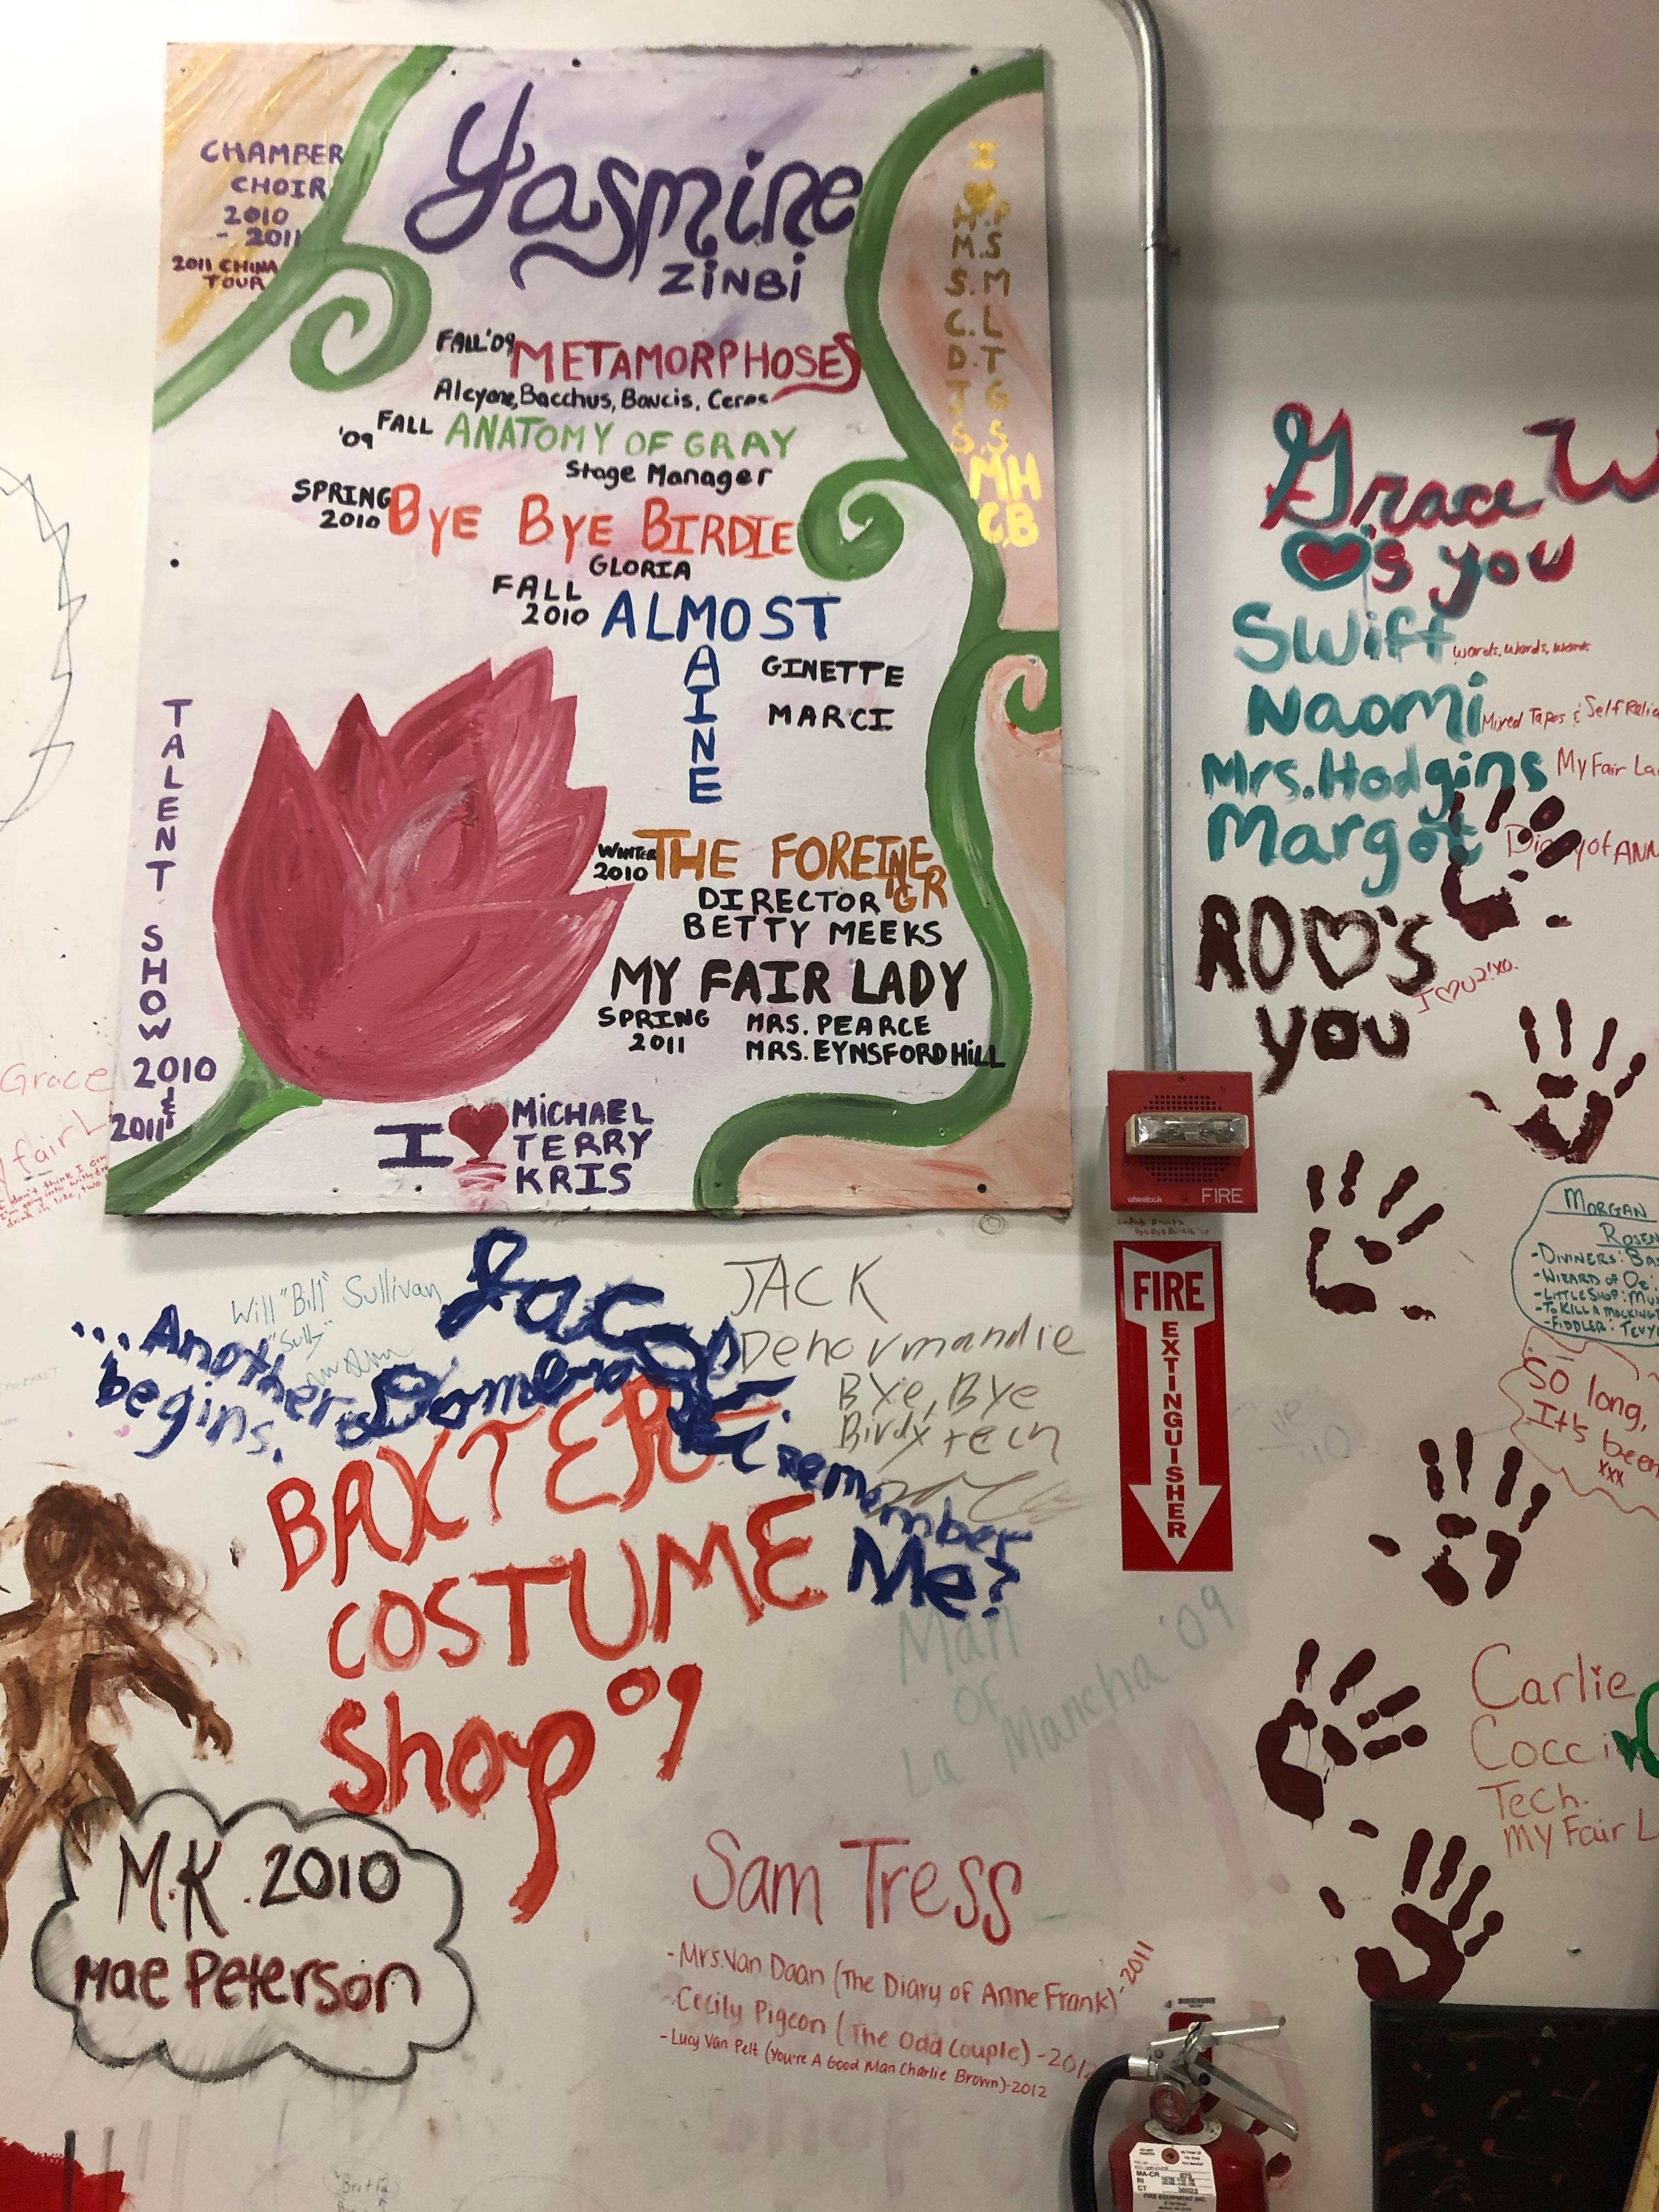 CHAMBER
CHOIR
2010
- 2011
2011 CHINA
TOUR
Yasmine
ZINBI
FALL '09 METAMORPHOSES
Alcyone, Bacchus, Baucis, Ceres
'09 FALL ANATOMY OF GRAY
Stage Manager
SPRING 2010 BYE BYE BIRDIE
GLORIA
FALL 2010 ALMOST
MAINE
GINETTE
MARCI
WINTER 2010 THE FOREINEGR
DIRECTOR
BETTY MEEKS
MY FAIR LADY
SPRING 2011
MRS. PEARCE
MRS. EYNSFORD HILL
TALENT SHOW
2010
2011
I ♥ MICHAEL
TERRY
KRIS
I
♥
H.P
M.S
S.M
C.L
D.T
J G
S.S
MH
C.B
Grace W
♥'s you
Swift words, words, words
Naomi Mixed Tapes & Self Relia
Mrs. Hodgins My Fair La
Margot Diary of ANN
RO ♥'s
you
I ♥ U 2! xo.
FIRE
wheelock
FIRE
EXTINGUISHER
MORGAN
ROSEN
- DIVINERS: BA
- WIZARD OF OZ:
- LITTLE SHOP: MU
- TO KILL A MOCKING
- FIDDLER: TEVY
So long,
It's been
xxx
Grace
fair L
I don't think I can
Will "Bill" Sullivan
"Sully"
Jacob
...Another
begins.
JACK
Denormandie
Bye, Bye
Birdy tech
remember
Me?
BAXTER
COSTUME
Shop '09
Man
of
La Mancha '09
M.
M.K. 2010
Mae Peterson
Sam Tress
- Mrs. Van Daan (The Diary of Anne Frank) - 2011
- Cecily Pigeon (The Odd Couple) - 2012
- Lucy Van Pelt (You're A Good Man Charlie Brown) - 2012
Carlie
Cocci
Tech.
My Fair L
MA-CR
RI
CT
FIRE EQUIPMENT INC.